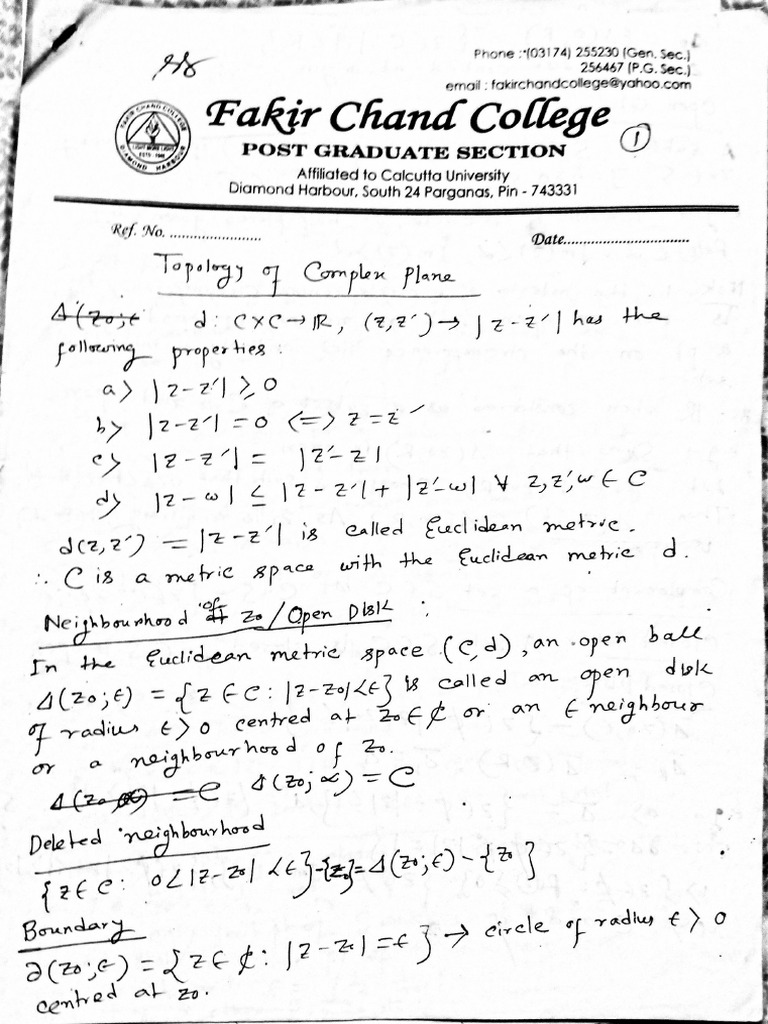 Phone : (03174) 255230 (Gen. Sec.)
256467 (P.G. Sec.)
email : fakirchandcollege@yahoo.com
Fakir Chand College
POST GRADUATE SECTION
①
Affiliated to Calcutta University
Diamond Harbour, South 24 Parganas, Pin - 743331
FAKIR CHAND COLLEGE
LIGHT MORE LIGHT
ESTD 1948
DIAMOND HARBOUR
Ref. No. ........................
Date................................
Topology of Complex Plane
Δ(z₀;ε d : C×C→ℝ, (z,z′)→ |z-z′| has the
following properties :
a> |z-z′| ≥ 0
b> |z-z′| = 0 <=> z = z′
c> |z-z′| = |z′-z|
d> |z-ω| ≤ |z-z′| + |z′-ω| ∀ z,z′,ω ∈ C
d(z,z′) = |z-z′| is called Euclidean metric.
∴ C is a metric space with the Euclidean metric d.
Neighbourhood of z₀/Open Disk :
In the Euclidean metric space (C,d), an open ball
Δ(z₀;ε) = {z ∈ C : |z-z₀|<ε} is called an open disk
of radius ε>0 centred at z₀∈ ₵ or an ε neighbour
or a neighbourhood of z₀.
Δ(z₀;∞) = C Δ(z₀;∝) = C
Deleted neighbourhood
{z∈C : 0<|z-z₀|<ε}-{z₀}=Δ(z₀;ε) - {z₀}
Boundary
∂(z₀;ε) = {z∈ ₵ : |z-z₀| = ε} → circle of radius ε > 0
centred at z₀.